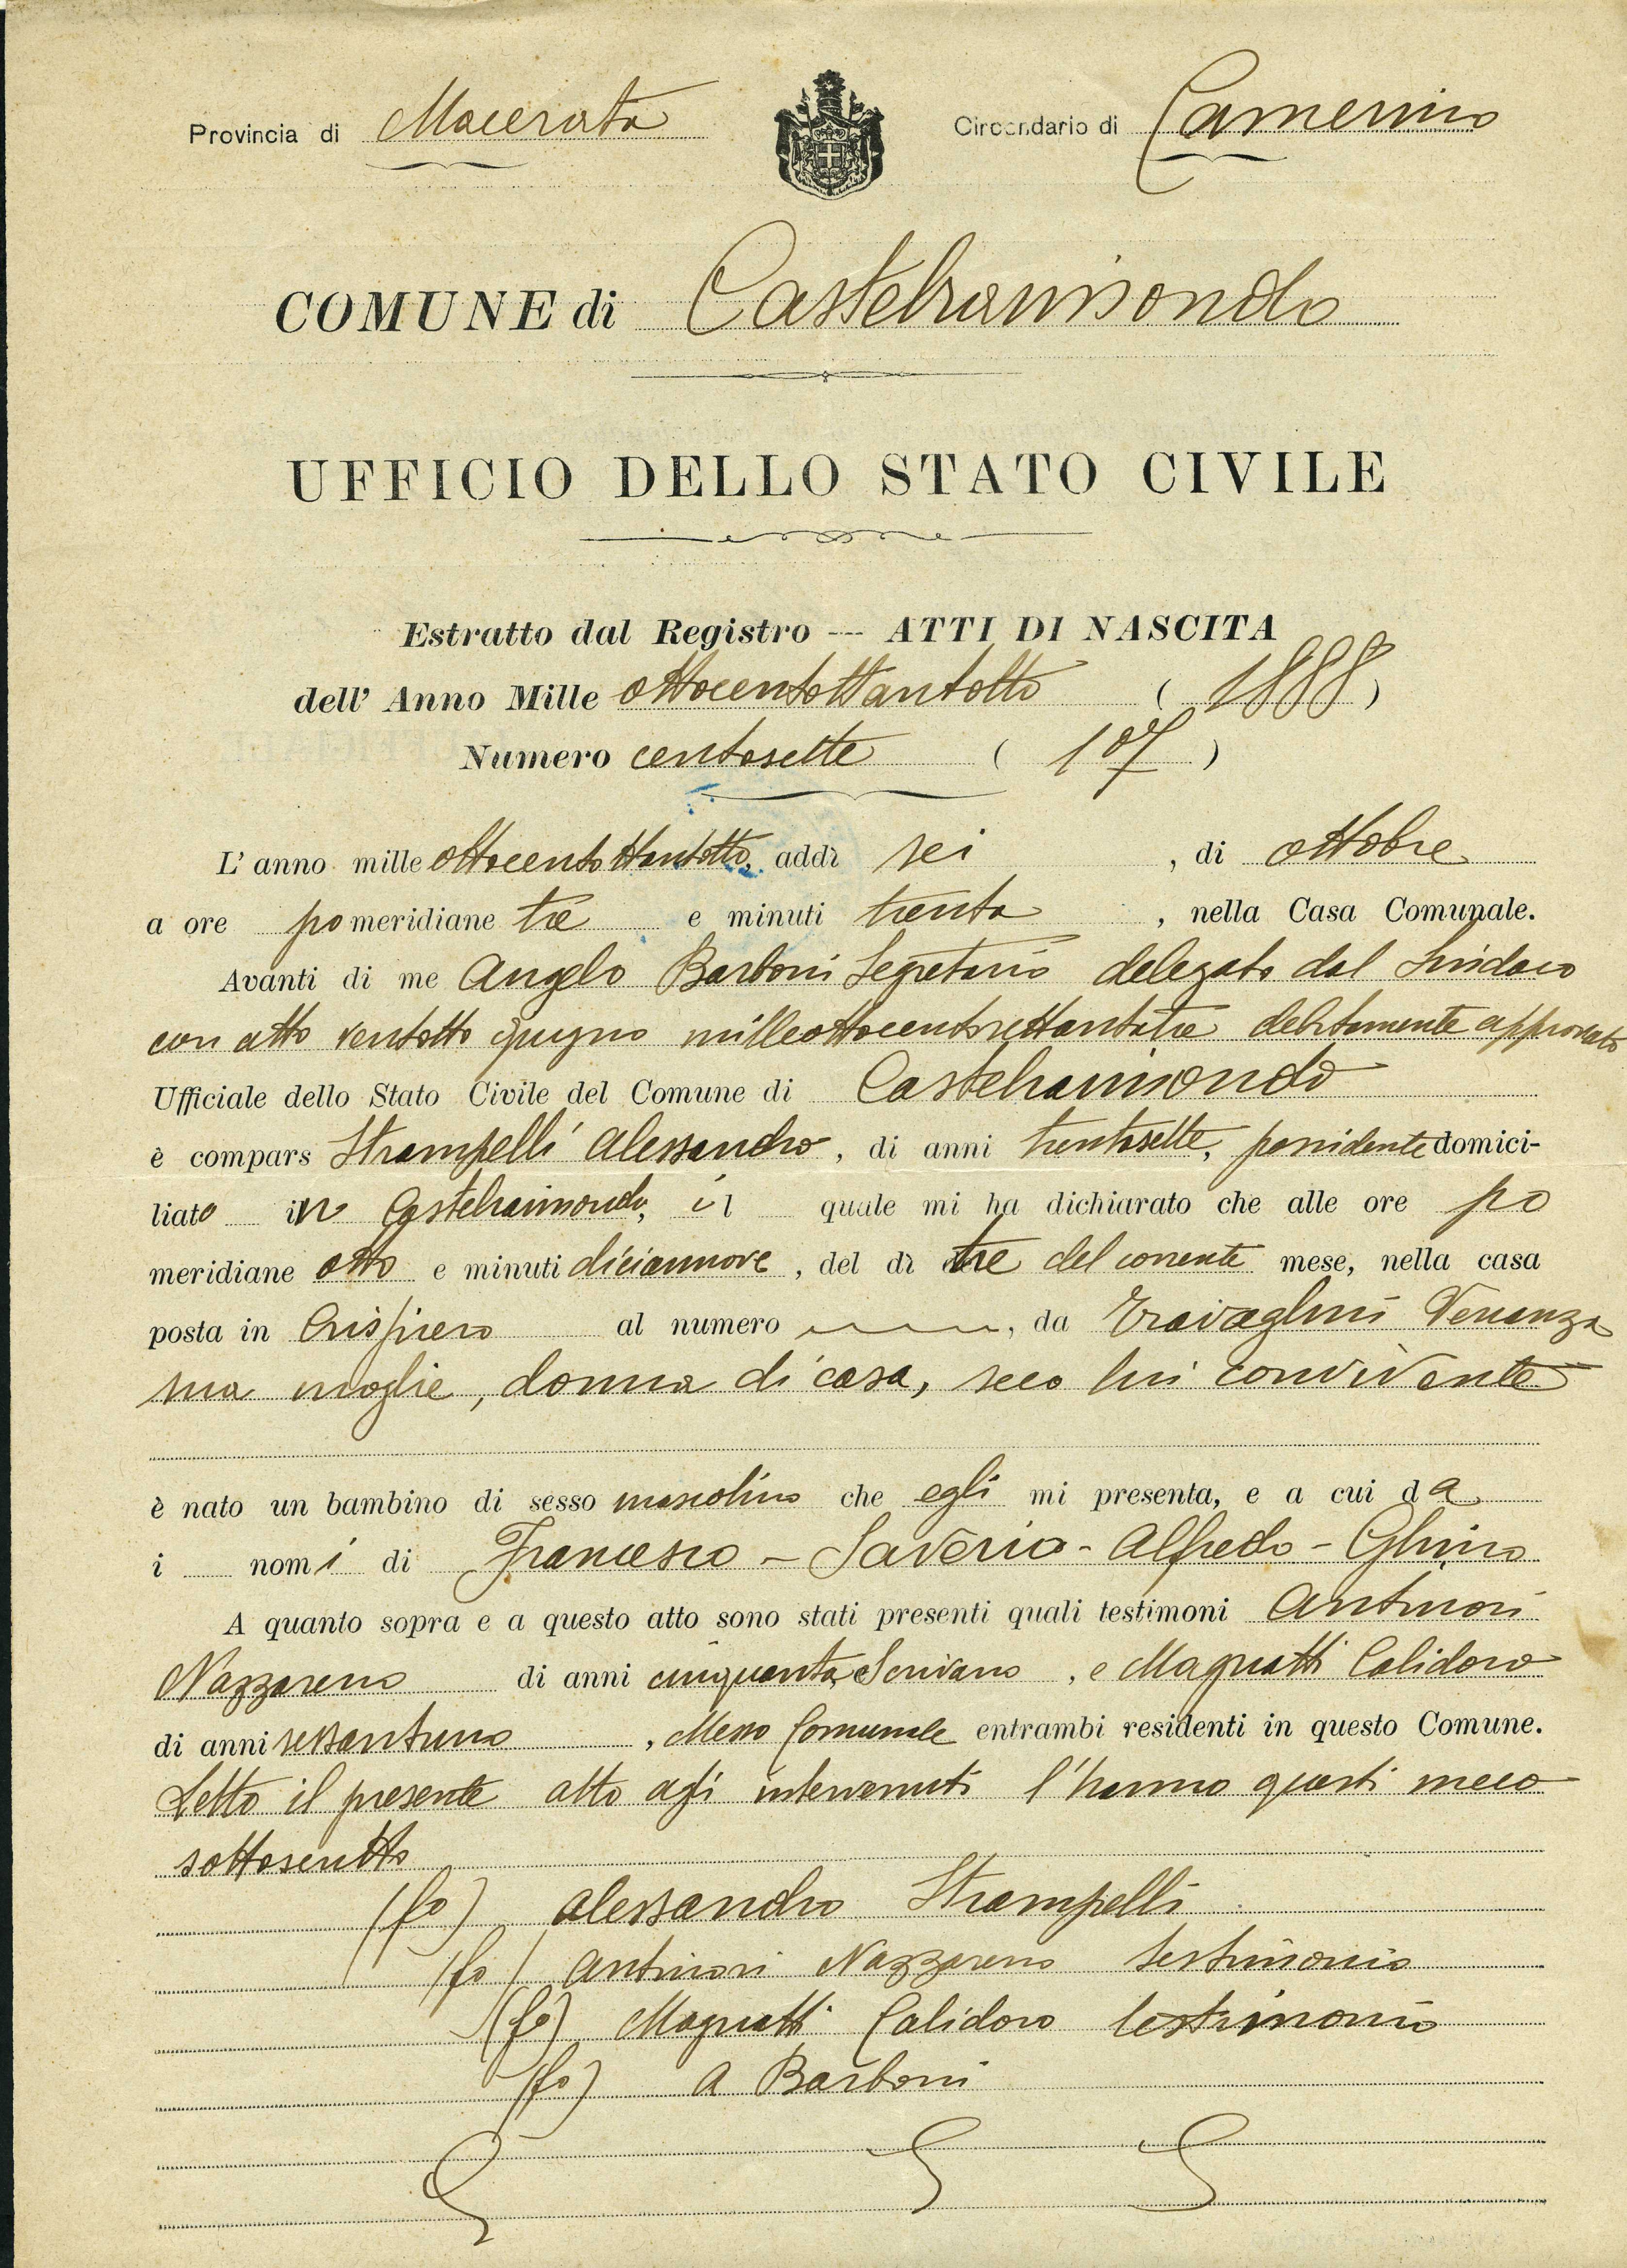 Provincia di Macerata Circondario di Camerino
COMUNE di Castelraimondo
UFFICIO DELLO STATO CIVILE
Estratto dal Registro --- ATTI DI NASCITA
dell' Anno Mille ottocentottantotto ( 1888 )
Numero centosette ( 107 )
L'anno mille ottocentottantotto, addì sei , di ottobre
a ore pomeridiane tre e minuti trenta , nella Casa Comunale.
Avanti di me Angelo Barboni Segretario delegato dal Sindaco
con atto ventotto giugno milleottocentosettantatre debitamente approvato
Ufficiale dello Stato Civile del Comune di Castelraimondo
è compars Strampelli Alessandro, di anni trentasette, possidente domici-
liato in Castelraimondo, il quale mi ha dichiarato che alle ore po
meridiane otto e minuti diciannove, del dì tre del corrente mese, nella casa
posta in Crispiero al numero , da Travaglini Venanza
sua moglie, donna di casa, seco lui convivente
è nato un bambino di sesso mascolino che egli mi presenta, e a cui da
i nomi di Francesco - Saverio - Alfredo - Ghino
A quanto sopra e a questo atto sono stati presenti quali testimoni Antinori
Nazzareno di anni cinquanta, Scrivano , e Magnatti Calidoro
di anni sessantuno , Messo Comunale entrambi residenti in questo Comune.
Letto il presente atto agli intervenuti l'hanno questi meco
sottoscritto
(fo) Alessandro Strampelli
(fo) Antinori Nazzareno testimonio
(fo) Magnatti Calidoro testimonio
(fo) A Barboni